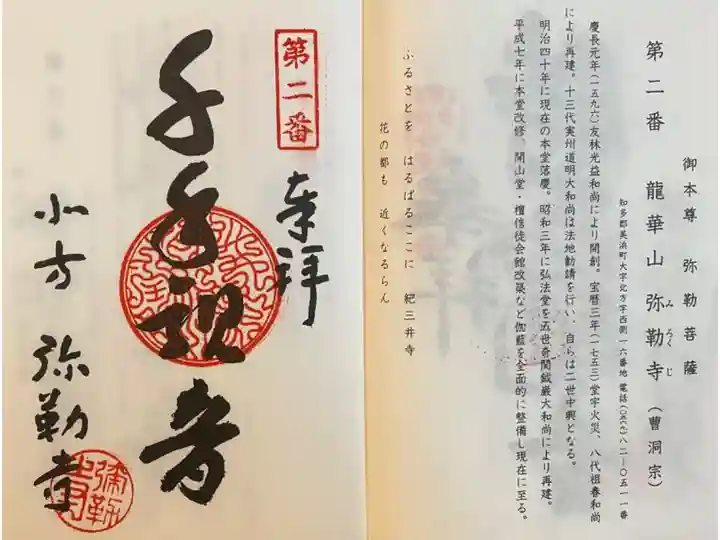 御本尊 弥勒菩薩
第二番 龍華山弥勒寺（曹洞宗）
みろくじ
知多郡美浜町大字北方字西側一六番地 電話(〇五六九)八二―〇五一一番
慶長元年(一五九六)友林光益和尚により開創。宝暦三年(一七五三)堂宇火災、八代祖春和尚
により再建。十三代実州道明大和尚は法地勧請を行い、自らは二世中興となる。
明治四十年に現在の本堂落慶。昭和三年に弘法堂を五世奇関鉞巌大和尚により再建。
平成七年に本堂改修、開山堂・檀信徒会館改築など伽藍を全面的に整備し現在に至る。
ふるさとを はるばるここに 紀三井寺
花の都も 近くなるらん
第二番
奉拝
千手観音
北方 弥勒寺